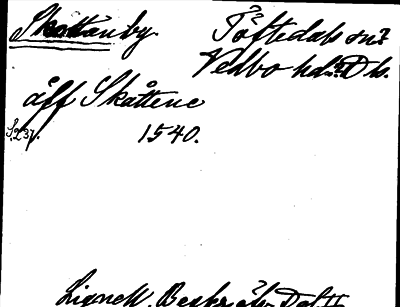 Skottanby Töftedals sn?
Vedbo hd. Ds.
åff Skåttene
S.237. 1540.
Lignell, Beskr. öfv. Dal II